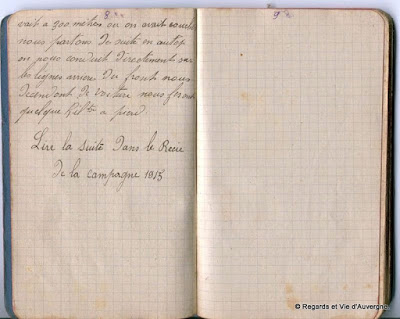 8
vait a 300 mètres ou on avait couché
nous partons de suite en autos
on nous conduit directement sur
les lignes arrière du front nous
decendont de voiture nous feront
quelque Kil^tr a pied.
Lire la suite Dans le Recie
De la campagne 1915
9
© Regards et Vie d'Auvergne.